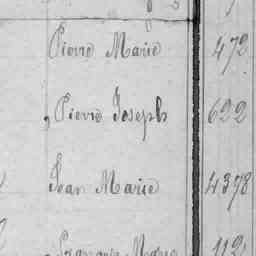 Pierre Marie 472
Pierre Joseph 622
Jean Marie 4378